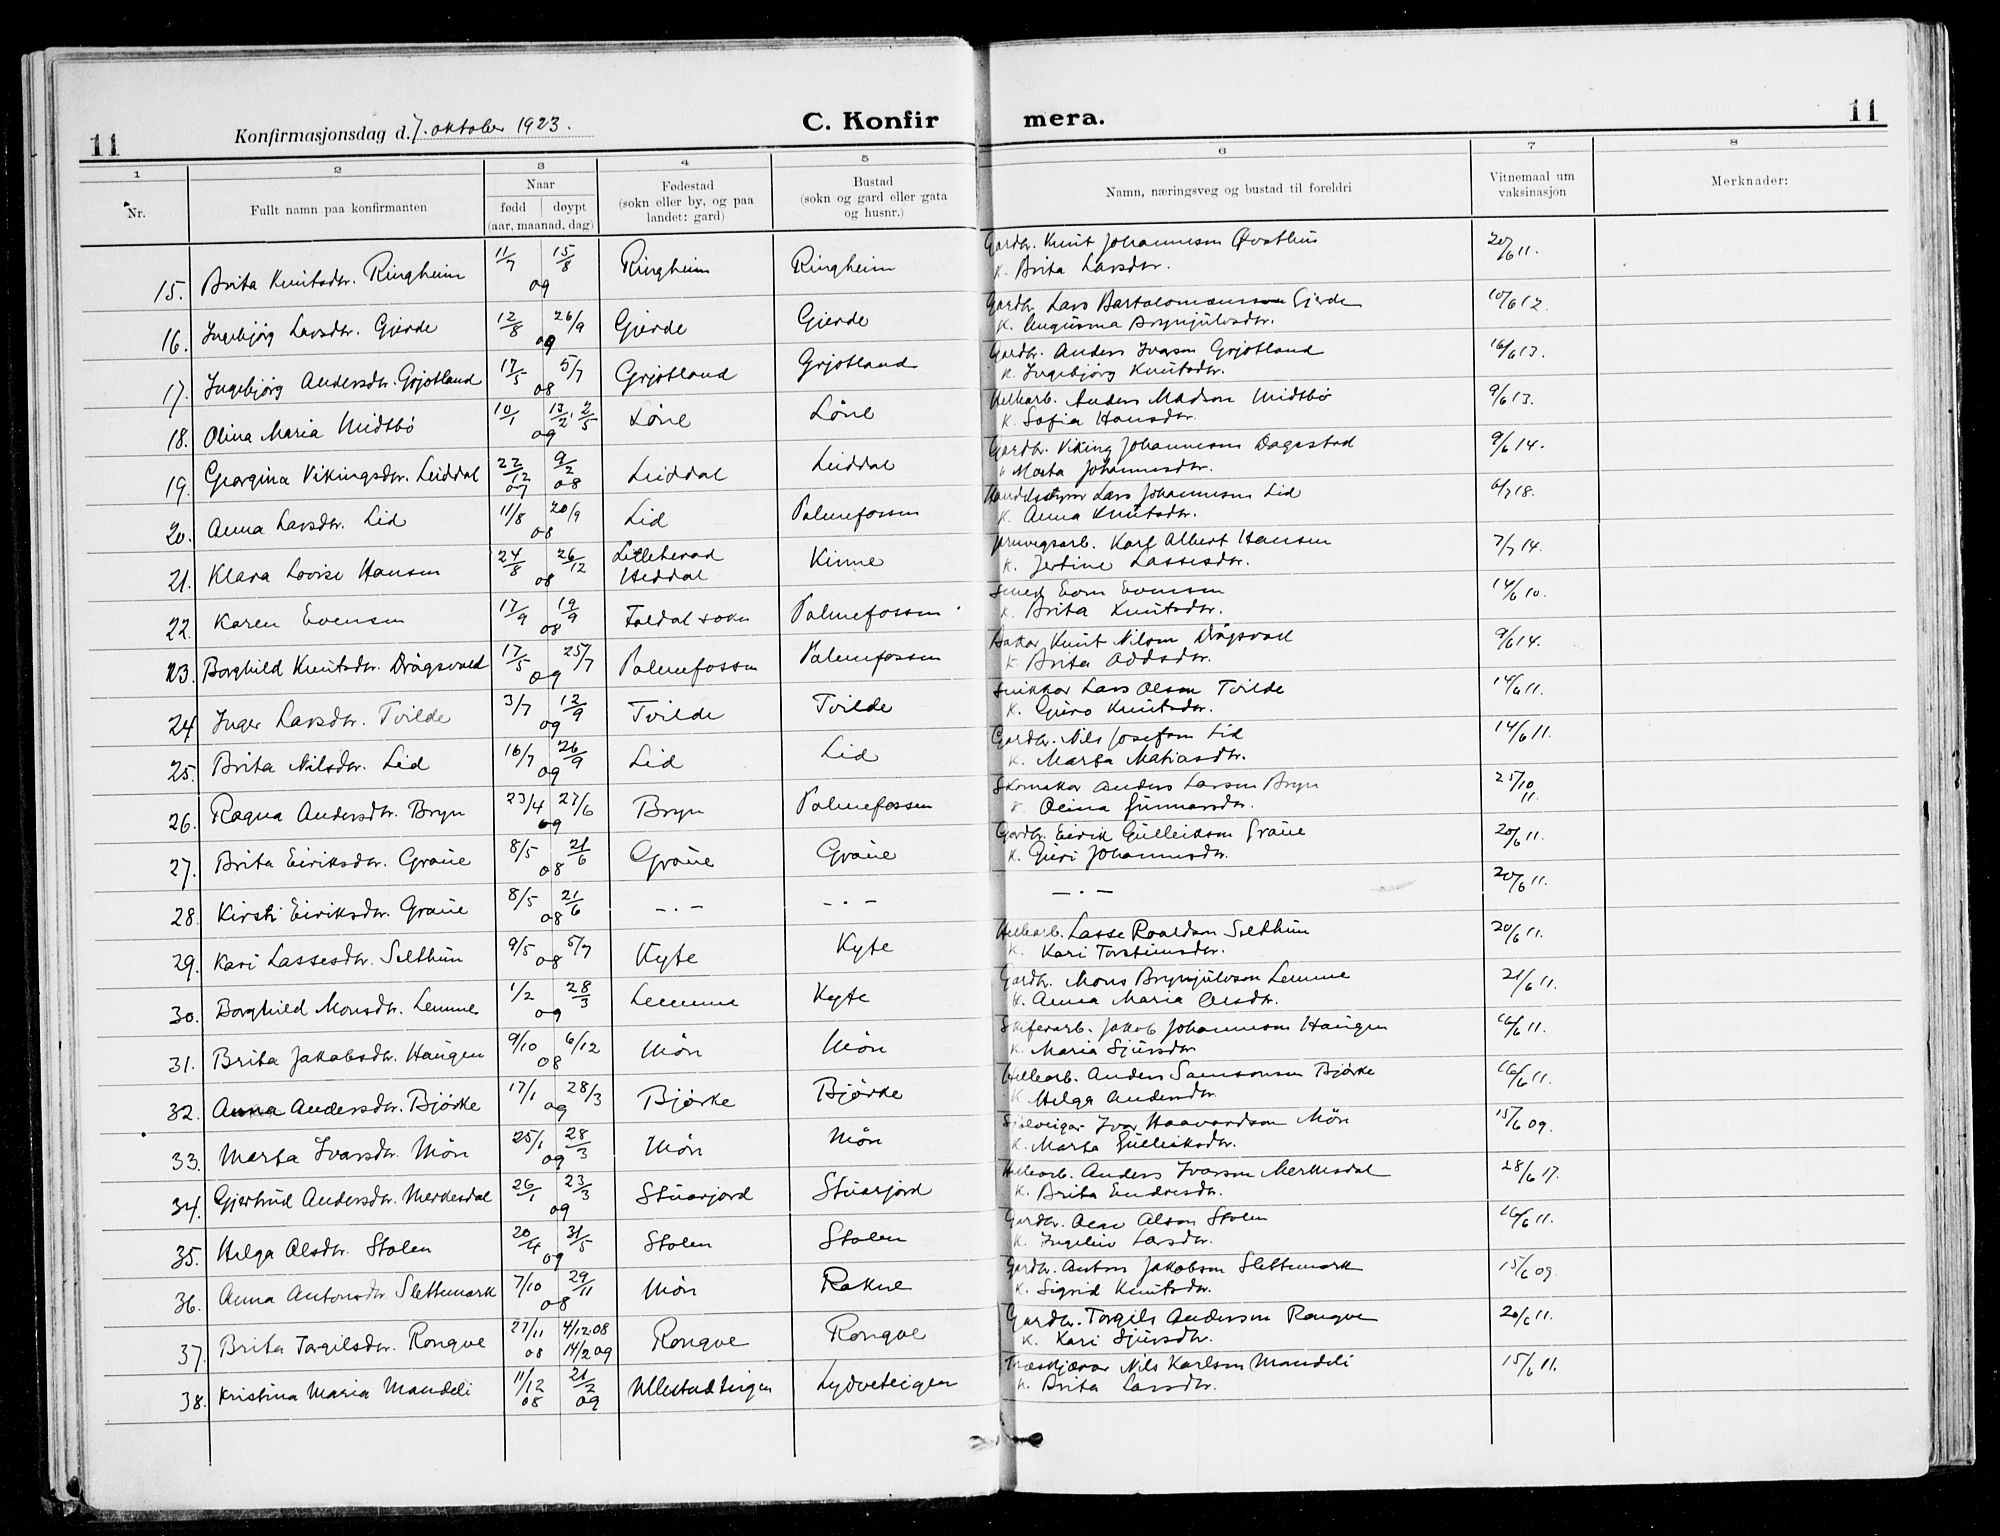 11 Konfirmasjonsdag d. 7. oktober 1923. C. Konfir mera. 11
1 2 3 4 5 6 7 8
Nr. Fullt namn paa konfirmanten Naar født døypt (aar, maanad, dag) Fødestad (sokn eller by, og paa landet: gard) Bustad (sokn og gard eller gata og husnr.) Namn, næringsveg og bustad til foreldri Vitnemaal um vaksinasjon Merknader:
15. Brita Knutsdtr. Ringheim 11/7 15/8 09 Ringheim Ringheim Gardbr. Knut Johannesson Øvsthus 20/6 11.
K. Brita Larsdtr.
16. Ingebjørg Larsdtr. Gjerde 12/8 26/9 09 Gjerde Gjerde Gardbr. Lars Bartolomæusson Gjerde 10/6 12.
K. Brynjulvsdtr.
17. Ingebjørg Andersdtr. Grjotland 17/5 5/7 08 Grjotland Grjotland Gardbr. Anders Ivarson Grjotland 16/6 13.
K. Ingebjørg Knutsdtr.
18. Olina Maria Midtbø 10/1 13/2, 2/5 09 Løne Løne Hellearb. Anders Madson Midtbø 9/6 13.
K. Sofia Hansdtr.
19. Georgina Vikingsdtr. Leiddal 22/12 07 9/2 08 Leiddal Leiddal Gardbr. Viking Johannesson Dagestad 9/6 14.
K. Marta Johannesdtr.
20. Anna Larsdtr. Lid 11/8 20/9 08 Lid Palmefossen Lars Johannesson Lid 6/7 18.
K. Anna Knutsdtr.
21. Klara Lovise Hansen 24/8 26/12 08 Litleherad Heddal Kinne Karl Albert Hansen 7/7 14.
K. Jertine Lassesdtr.
22. Karen Evensen 17/9 19/9 08 Foldal sokn Palmefossen Smed Even Evensen 14/6 10.
K. Brita Knutsdtr.
23. Borghild Knutsdtr. Drágsvold 17/5 25/7 09 Palmefossen Palmefossen Bakar Knut Nilson Drágsvoll 9/6 14.
K. Brita Oddsdtr.
24. Inger Larsdtr. Tvilde 3/7 12/9 09 Tvilde Tvilde Snikkar Lars Olson Tvilde 14/6 11.
K. Guro Knutsdtr.
25. Brita Nilsdtr. Lid 16/7 26/9 09 Lid Lid Gardbr. Nils Josefson Lid 14/6 11.
K. Marta Matiasdtr.
26. Ragna Andersdtr. Bryn 23/4 27/6 09 Bryn Palmefossen Skomakar Anders Larson Bryn 25/10 11.
K. Olina Gunnarsdtr.
27. Brita Eiriksdtr. Graue 8/5 21/6 08 Graue Graue Gardbr. Eirik Gulleikson Graue 20/6 11.
K. Guri Johannesdtr.
28. Kirsti Eiriksdtr. Graue 8/5 21/6 08 — . — — . — — . — 20/6 11.
29. Kari Lassesdtr. Selthun 9/5 5/7 08 Kyte Kyte Hellearb. Lasse Roaldson Selthun 20/6 11.
K. Kari Torsteinsdtr.
30. Borghild Monsdtr. Lemme 1/2 28/3 09 Lemme Kyte Gardbr. Mons Brynjulvson Lemme 21/6 11.
K. Anna Maria Olsdtr.
31. Brita Jakobsdtr. Haugen 9/10 6/12 08 Møn Møn Skiferarb. Jakob Johannesson Haugen 16/6 11.
K. Maria Sjursdtr
32. Anna Andersdtr. Bjørke 17/1 28/3 09 Bjørke Bjørke Hellearb. Anders Samsonson Bjørke 16/6 11.
K. Helga Andersdtr.
33. Marta Ivarsdtr. Møn 25/1 28/3 09 Møn Møn Sjølveigar Ivar Haavardson Møn 15/6 09.
K. Marta Gulleiksdtr.
34. Gjertrud Andersdtr. Merkesdal 26/1 23/3 09 Stuarjord Stuarjord Hellearb. Anders Ivarson Merkesdal 28/6 17.
K. Brita Endresdtr.
35. Helga Olsdtr. Stolen 20/4 31/5 09 Stolen Stolen Gardbr. Olav Olson Stolen 16/6 11.
K. Ingeleiv Larsdtr.
36. Anna Antonsdtr. Slettemark 7/10 29/11 08 Møn Rokne Gardbr. Anton Jakobson Slettemark 15/6 09.
K. Sigrid Knutsdtr.
37. Brita Torgilsdtr. Rongve 27/11 08 4/12 08 14/2 09 Rongve Rongve Gardbr. Torgils Anderson Rongve 20/6 11.
K. Kari Sjursdtr.
38. Kristina Maria Mandeli 11/12 08 21/2 09 Ullestadteigen Lydveteigen Træskjærar Nils Karlson Mandeli 15/6 11.
K. Brita Larsdtr.